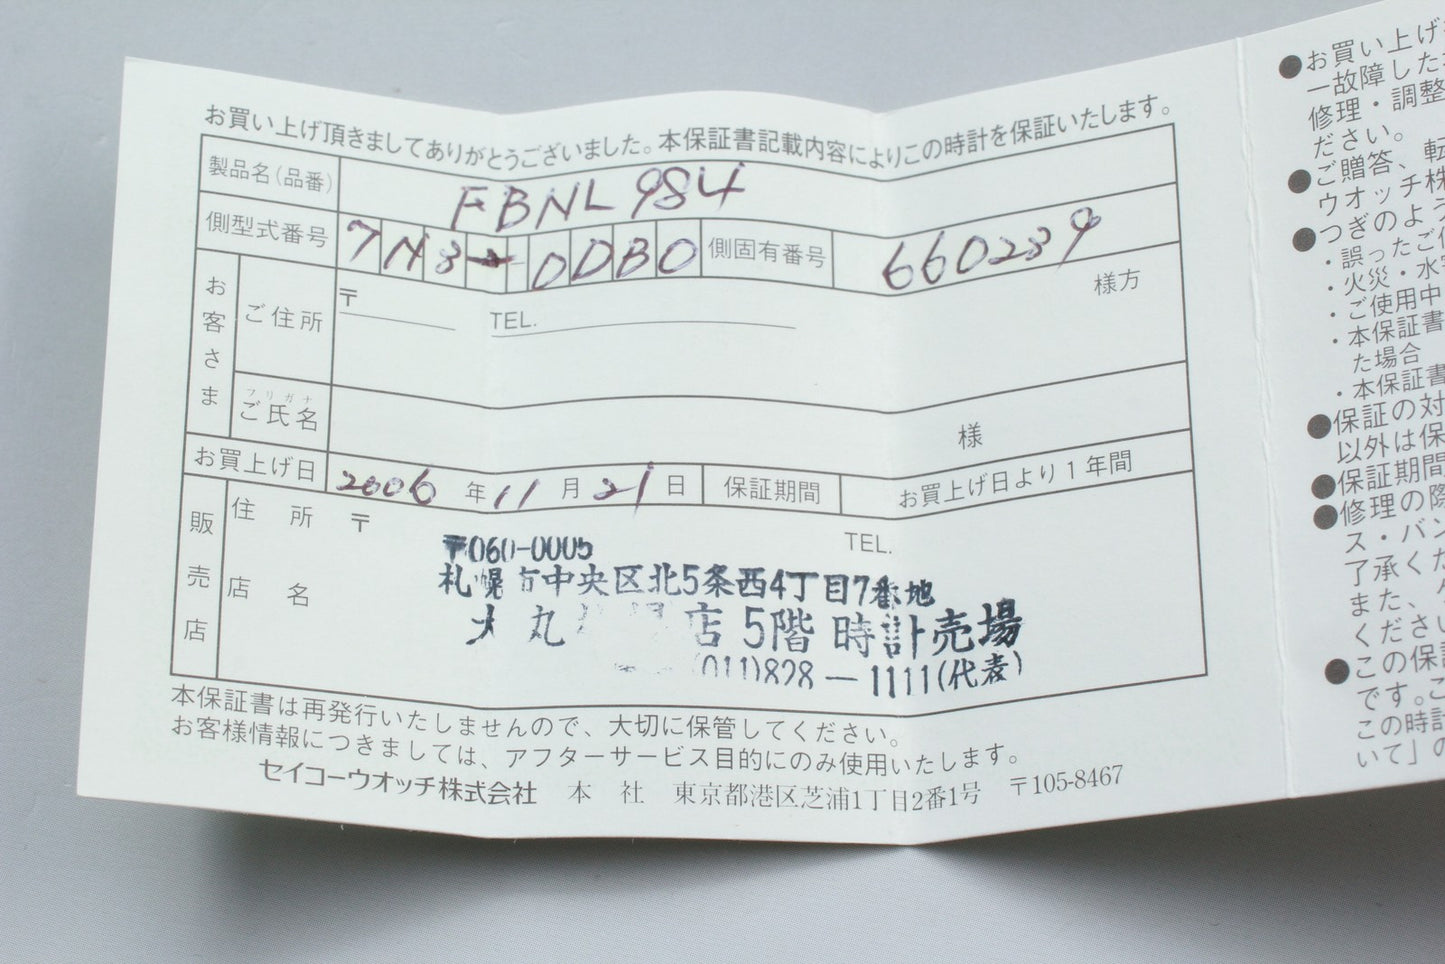 お買い上げ頂きましてありがとうございました。本保証書記載内容によりこの時計を保証いたします。
製品名(品番) FBNL984
側型式番号 7N3 - 0DB0 側固有番号 660239
お客さま
ご住所 〒 TEL. 様方
フリガナ
ご氏名 様
お買上げ日 2006 年 11 月 21 日 保証期間 お買上げ日より1年間
販売店
住所 〒 TEL.
〒060-0005
札幌市中央区北5条西4丁目7番地
店名
大丸 店5階時計売場
(011)828-1111(代表)
本保証書は再発行いたしませんので、大切に保管してください。
お客様情報につきましては、アフターサービス目的にのみ使用いたします。
セイコーウオッチ株式会社 本社 東京都港区芝浦1丁目2番1号 〒105-8467
●お買い上げ
一故障した
修理・調整
ださい。
●ご贈答、転
ウオッチ株
●つぎのよう
・誤ったご使
・火災・水害
・ご使用中
・本保証書
た場合
・本保証書
●保証の対
以外は保
●保証期間
●修理の際
ス・バン
了承くだ
また、
くださ
●この保証
です。こ
この時計
いて」の